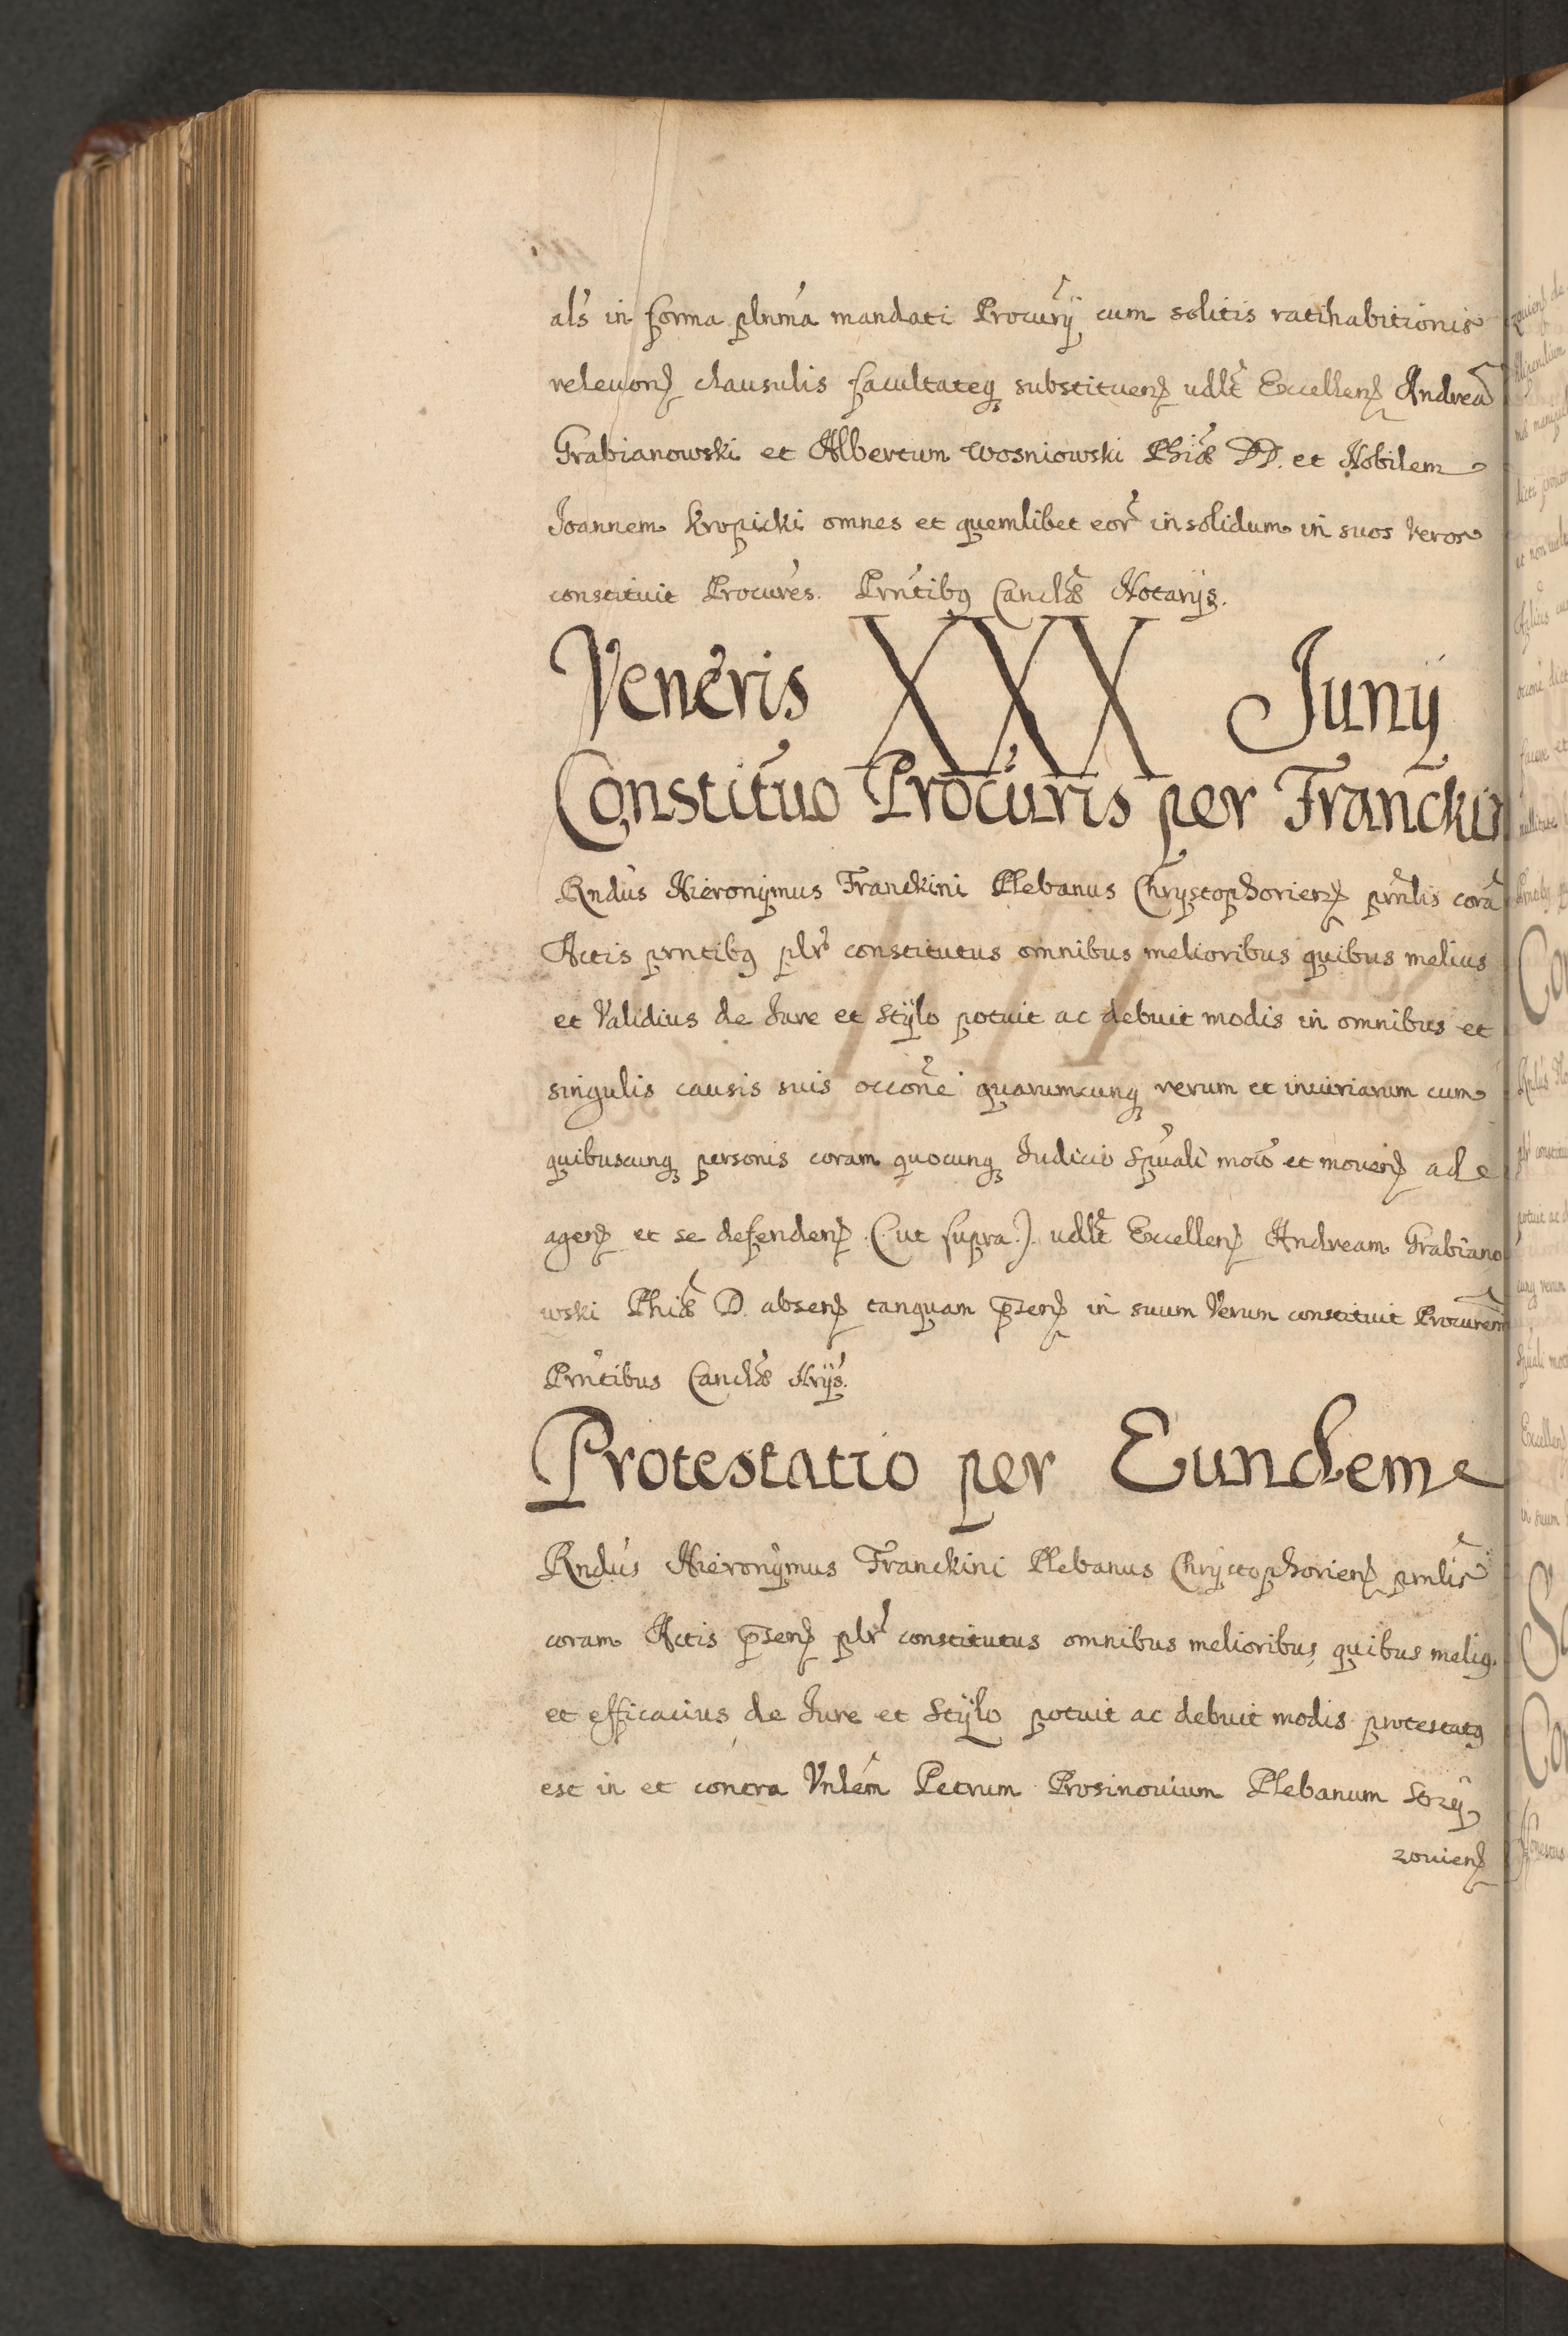 als in forma plnma mandati Procurij cum solitis ratihabitionis
relevonȝ clausulis facultateqꝫ substituenȝ udlt Excellenȝ Andrea
Grabianowski et Albertum Wosniowski Phiæ DD. et Nobilem
Joannem Kropicki omnes et quemlibet eor insolidum in suos veros
constituit Procures. Prntibꝫ Canclæ Notarijs.
Veneris XXX Junij
Constituo Procuris per Franckin
Rndus Hieronÿmus Franckini Plebanus Chrystophorienȝ prnlis cora
Actis prntibꝫ plr constitutus omnibus melioribus quibus melius
et Validius de Jure et stÿlo potuit ac debuit modis in omnibus et
singulis causis suis occone quarumcunqꝫ rerum et iniuriarum cum
quibuscunqꝫ personis coram quocunqꝫ Judicio Spuali moto et mouenȝ ad
agenȝ et se defendenȝ (ut supra.) udlt Excellenȝ Andream Grabiano
wski Phiæ D. absenȝ tanquam p̄senȝ in suum Verum constituit Procurem
Prntibus Canclæ Nrijs.
Protestatio per Eundem
Rndus Hieronÿmus Franckini Plebanus Chrÿstophorienȝ prnlis
coram Actis p̄senȝ plr constitutus omnibus melioribus, quibus meliꝫ
et efficacius de Jure et Stÿlo potuit ac debuit modis protestatꝫ
est in et contra Vnlem Petrum Prosinouium Plebanum Strzy
zouienȝ